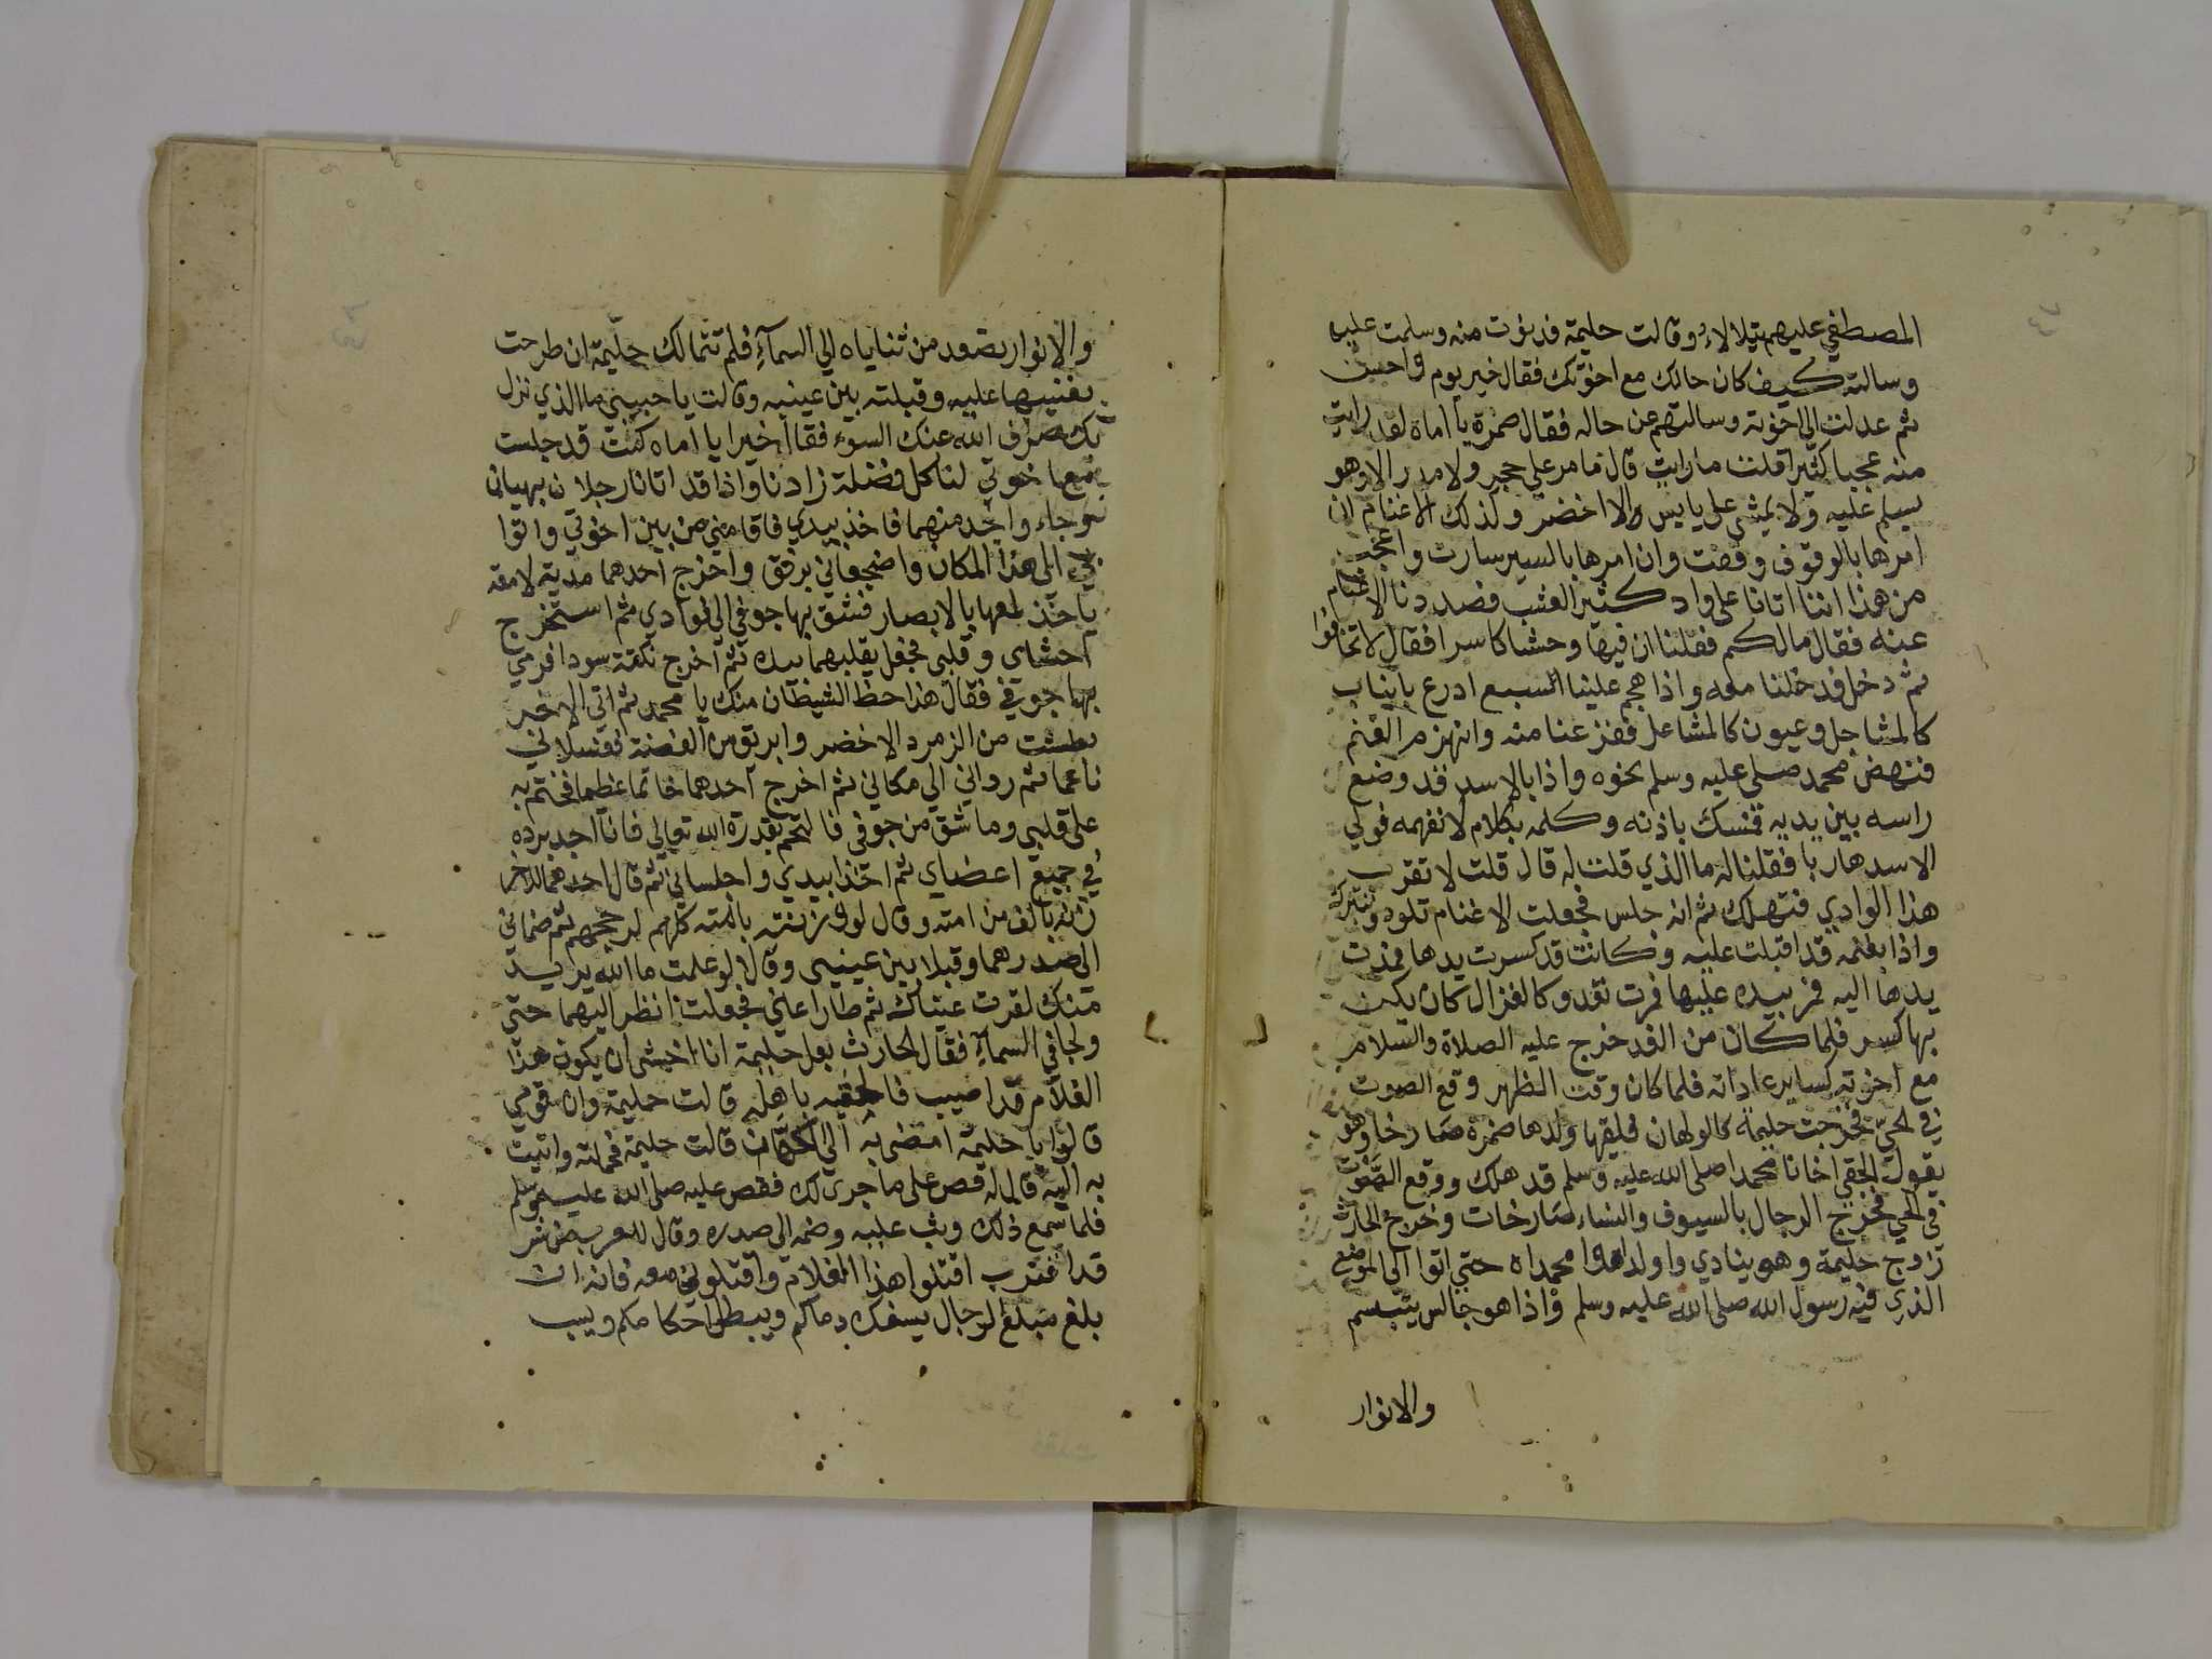 المصطفي عليهم يتلالاء وقالت حليمة فدنوت منه وسلمت عليه
وسالته كيف كان حالك مع اخوتك فقال خير يوم واحسن
ثم عدلت الي اخوته وسالتهم عن حاله فقال ضمرة يا اماه لقد رايت
منه عجبا كثيرا قلت ما رايت قال ما مر علي حجر ولا مدر الا وهو
يسلم عليه ولا يمشي على يابس والا اخضر وكذلك الاغنام ان
امرها بالوقوف وقفت وان امرها بالسير سارت واعجب
من هذا اننا اتانا على واد كثير العشب فصددنا الاغنام
عنه فقال مالكم فقلنا ان فيها وحشا كاسرا فقال لا تخافوا
ثم دخل فدخلنا معه واذا هجم علينا السبع ادرع بانياب
كالمشاجل وعيون كالمشاعل ففزعنا منه وانهزم الغنم
فنهض محمد صلى عليه وسلم نحوه واذا بالاسد قد وضع
راسه بين يديه فمسك باذنه وكلمه بكلام لا نفهمه فولي
الاسد هاربا فقلنا له ما الذي قلت له قال قلت لا تقرب
هذا الوادي فتهلك ثم انه جلس فجعلت الاغنام تلوذ وتتبرك
واذا بغنمه قد اقبلت عليه وكانت قد كسرت يدها فمدت
يدها اليه فمر بيده عليها فمرت تعدو كالغزال كان لم يكن
بها كسر فلما كان من الغد خرج عليه الصلاة والسلام
مع اخوته كساير عاداته فلما كان وقت الظهر وقع الصوت
في الحي فخرجت حليمة كالولهان فلقيها ولدها ضمرة صارخا وهو
يقول الحقي اخانا محمدا صلى الله عليه وسلم قد هلك ووقع الصوت
في الحي فخرج الرجال بالسيوف والنساء صارخات وخرج الحارث
زوج حليمة وهو ينادي واولداه وا محمداه حتي اتوا الي الموضع
الذي فيه رسول الله صلى الله عليه وسلم واذا هو جالس يتبسم
والانوار
والانوار تصعد من ثناياه الي السمآء فلم تتمالك حليمة ان طرحت
بنفسها عليه وقبلته بين عينيه وقالت يا حبيبي ما الذي نزل
بك صرف الله عنك السوء فقال خيرا يا اماه كنت قد جلست
مع اخوتي لناكل فضلة زادنا واذا قد اتانا رجلان بهيان
وجاء واحد منهما فاخذ بيدي فاقامني من بين اخوتي واتوا
بي الى هذا المكان واضجعاني برفق واخرج احدهما مدية لامعة
ياخذ لمعها بالابصار فشق بها جوفي الي فوادي ثم استخرج
احشاي وقلبي فجعل يقلبهما بيده ثم اخرج نكتة سودا فرمي
بها فقال هذا حظ الشيطان منك يا محمد ثم اتي الاخر
بطشت من الزمرد الاخضر وابريق من الفضة فغسلاني
ناعما ثم رداني الي مكاني ثم اخرج احدهما خاتما عظيما فختم به
على قلبي وما شق من جوفي فالتحم بقدرة الله تعالي فانا اجد برده
في جميع اعضاي ثم اخذا بيدي واجلساني ثم قال احدهما للاخر
زنه بالف من امته وقال لو وزنته بامته كلهم لرجحهم ثم ضماني
الي صدرهما وقبلا بين عيني وقالا لو علمت ما الله يريد
منك لقرت عيناك ثم طارا عني فجعلت انظر اليهما حتي
ولجا في السمآء فقال الحارث بعل حليمة انا اخشى ان يكون هذا
الغلام قد اصيب فالحقيه باهله قالت حليمة وان قومي
قالوا يا حليمة امضي به الي الكهان قالت حليمة فحملته واتيت
به اليه قال له قص على ما جرى لك فقص عليه صلى الله عليه وسلم
فلما سمع ذلك وثب عليه وضمه الي صدره وقال للعرب من شر
قد اقترب اقتلوا هذا الغلام واقتلوني معه فانه ان
بلغ مبلغ الرجال يسفك دماكم ويبطل احكامكم ويسب